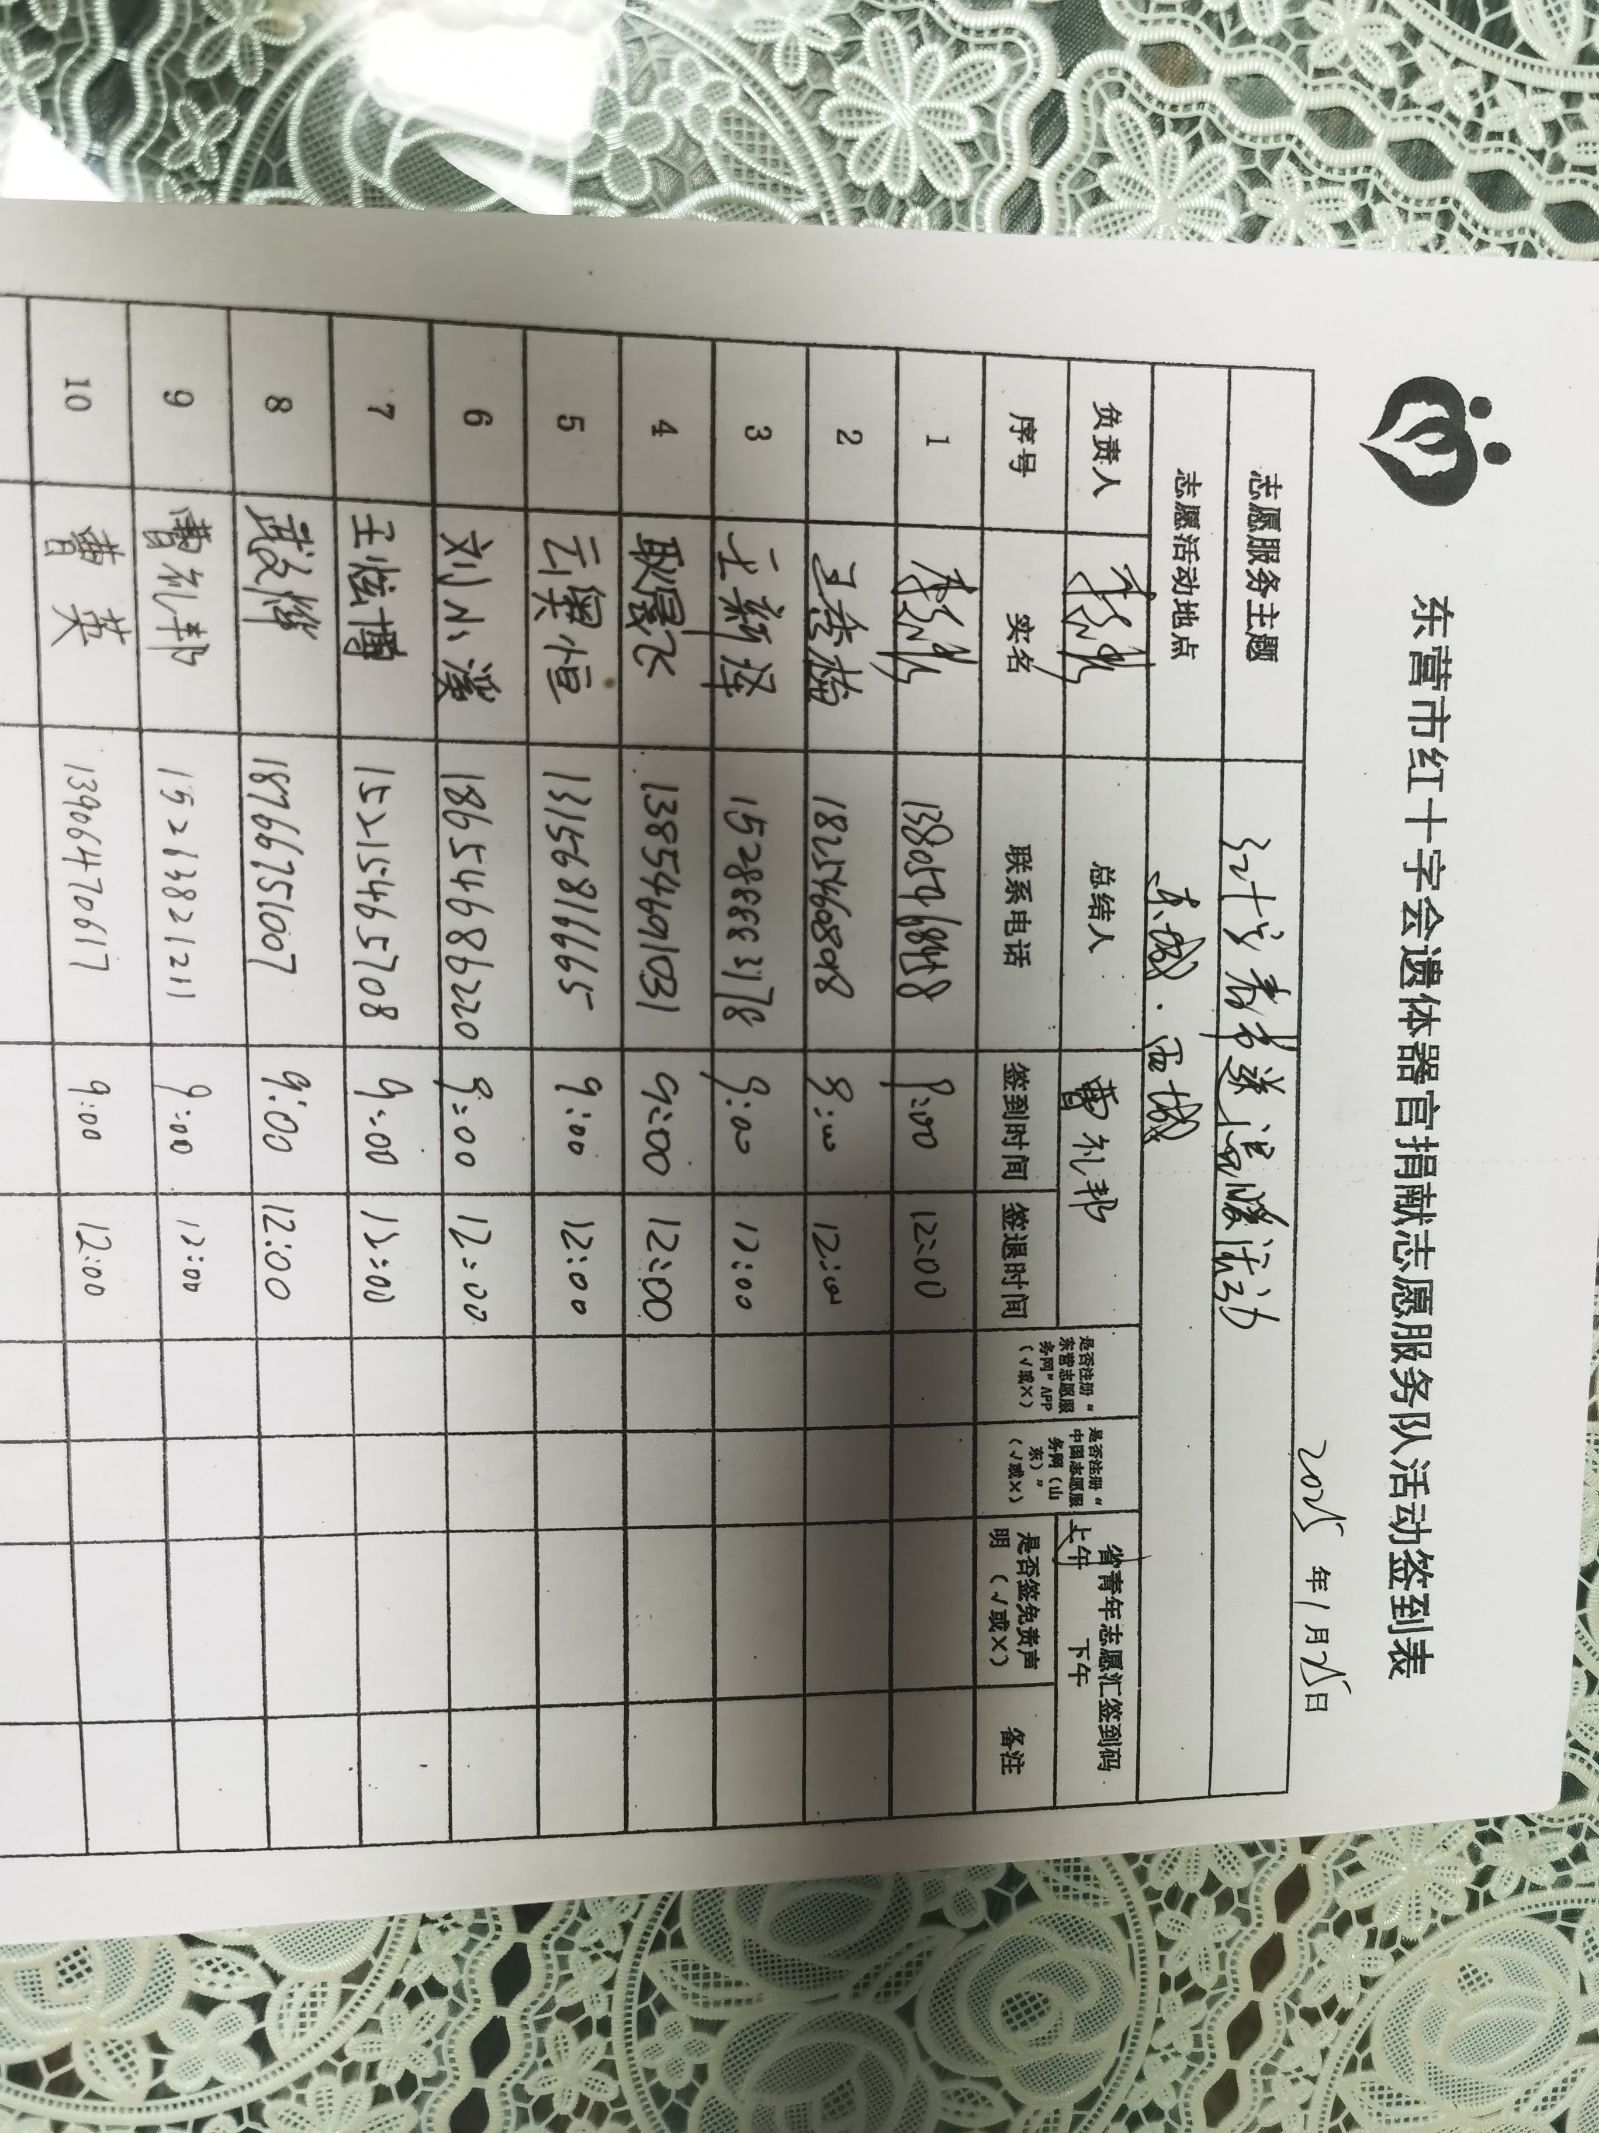 东营市红十字会遗体器官捐献志愿服务队活动签到表
2025 年 1 月 25 日
志愿服务主题 红十字春节送温暖活动
志愿活动地点 东城.西城
负责人 总结人 曹礼邦 省青年志愿汇签到码 上午 下午
序号 实名 联系电话 签到时间 签退时间 是否注册“东营志愿服务网”APP(√或×) 是否注册“中国志愿服务网(山东)”(√或×) 是否签免责声明(√或×) 备注
1 9:00 12:00
2 王秀梅 18254608098 9:00 12:00
3 王新泽 15288883178 9:00 12:00
4 耿冕飞 13854691031 9:00 12:00
5 王奥恒 13156816665 9:00 12:00
6 刘小溪 18654686220 9:00 12:00
7 王炫博 15215465708 9:00 12:00
8 武文辉 18766751007 9:00 12:00
9 曹礼邦 15263821211 9:00 12:00
10 曹英 13906470617 9:00 12:00